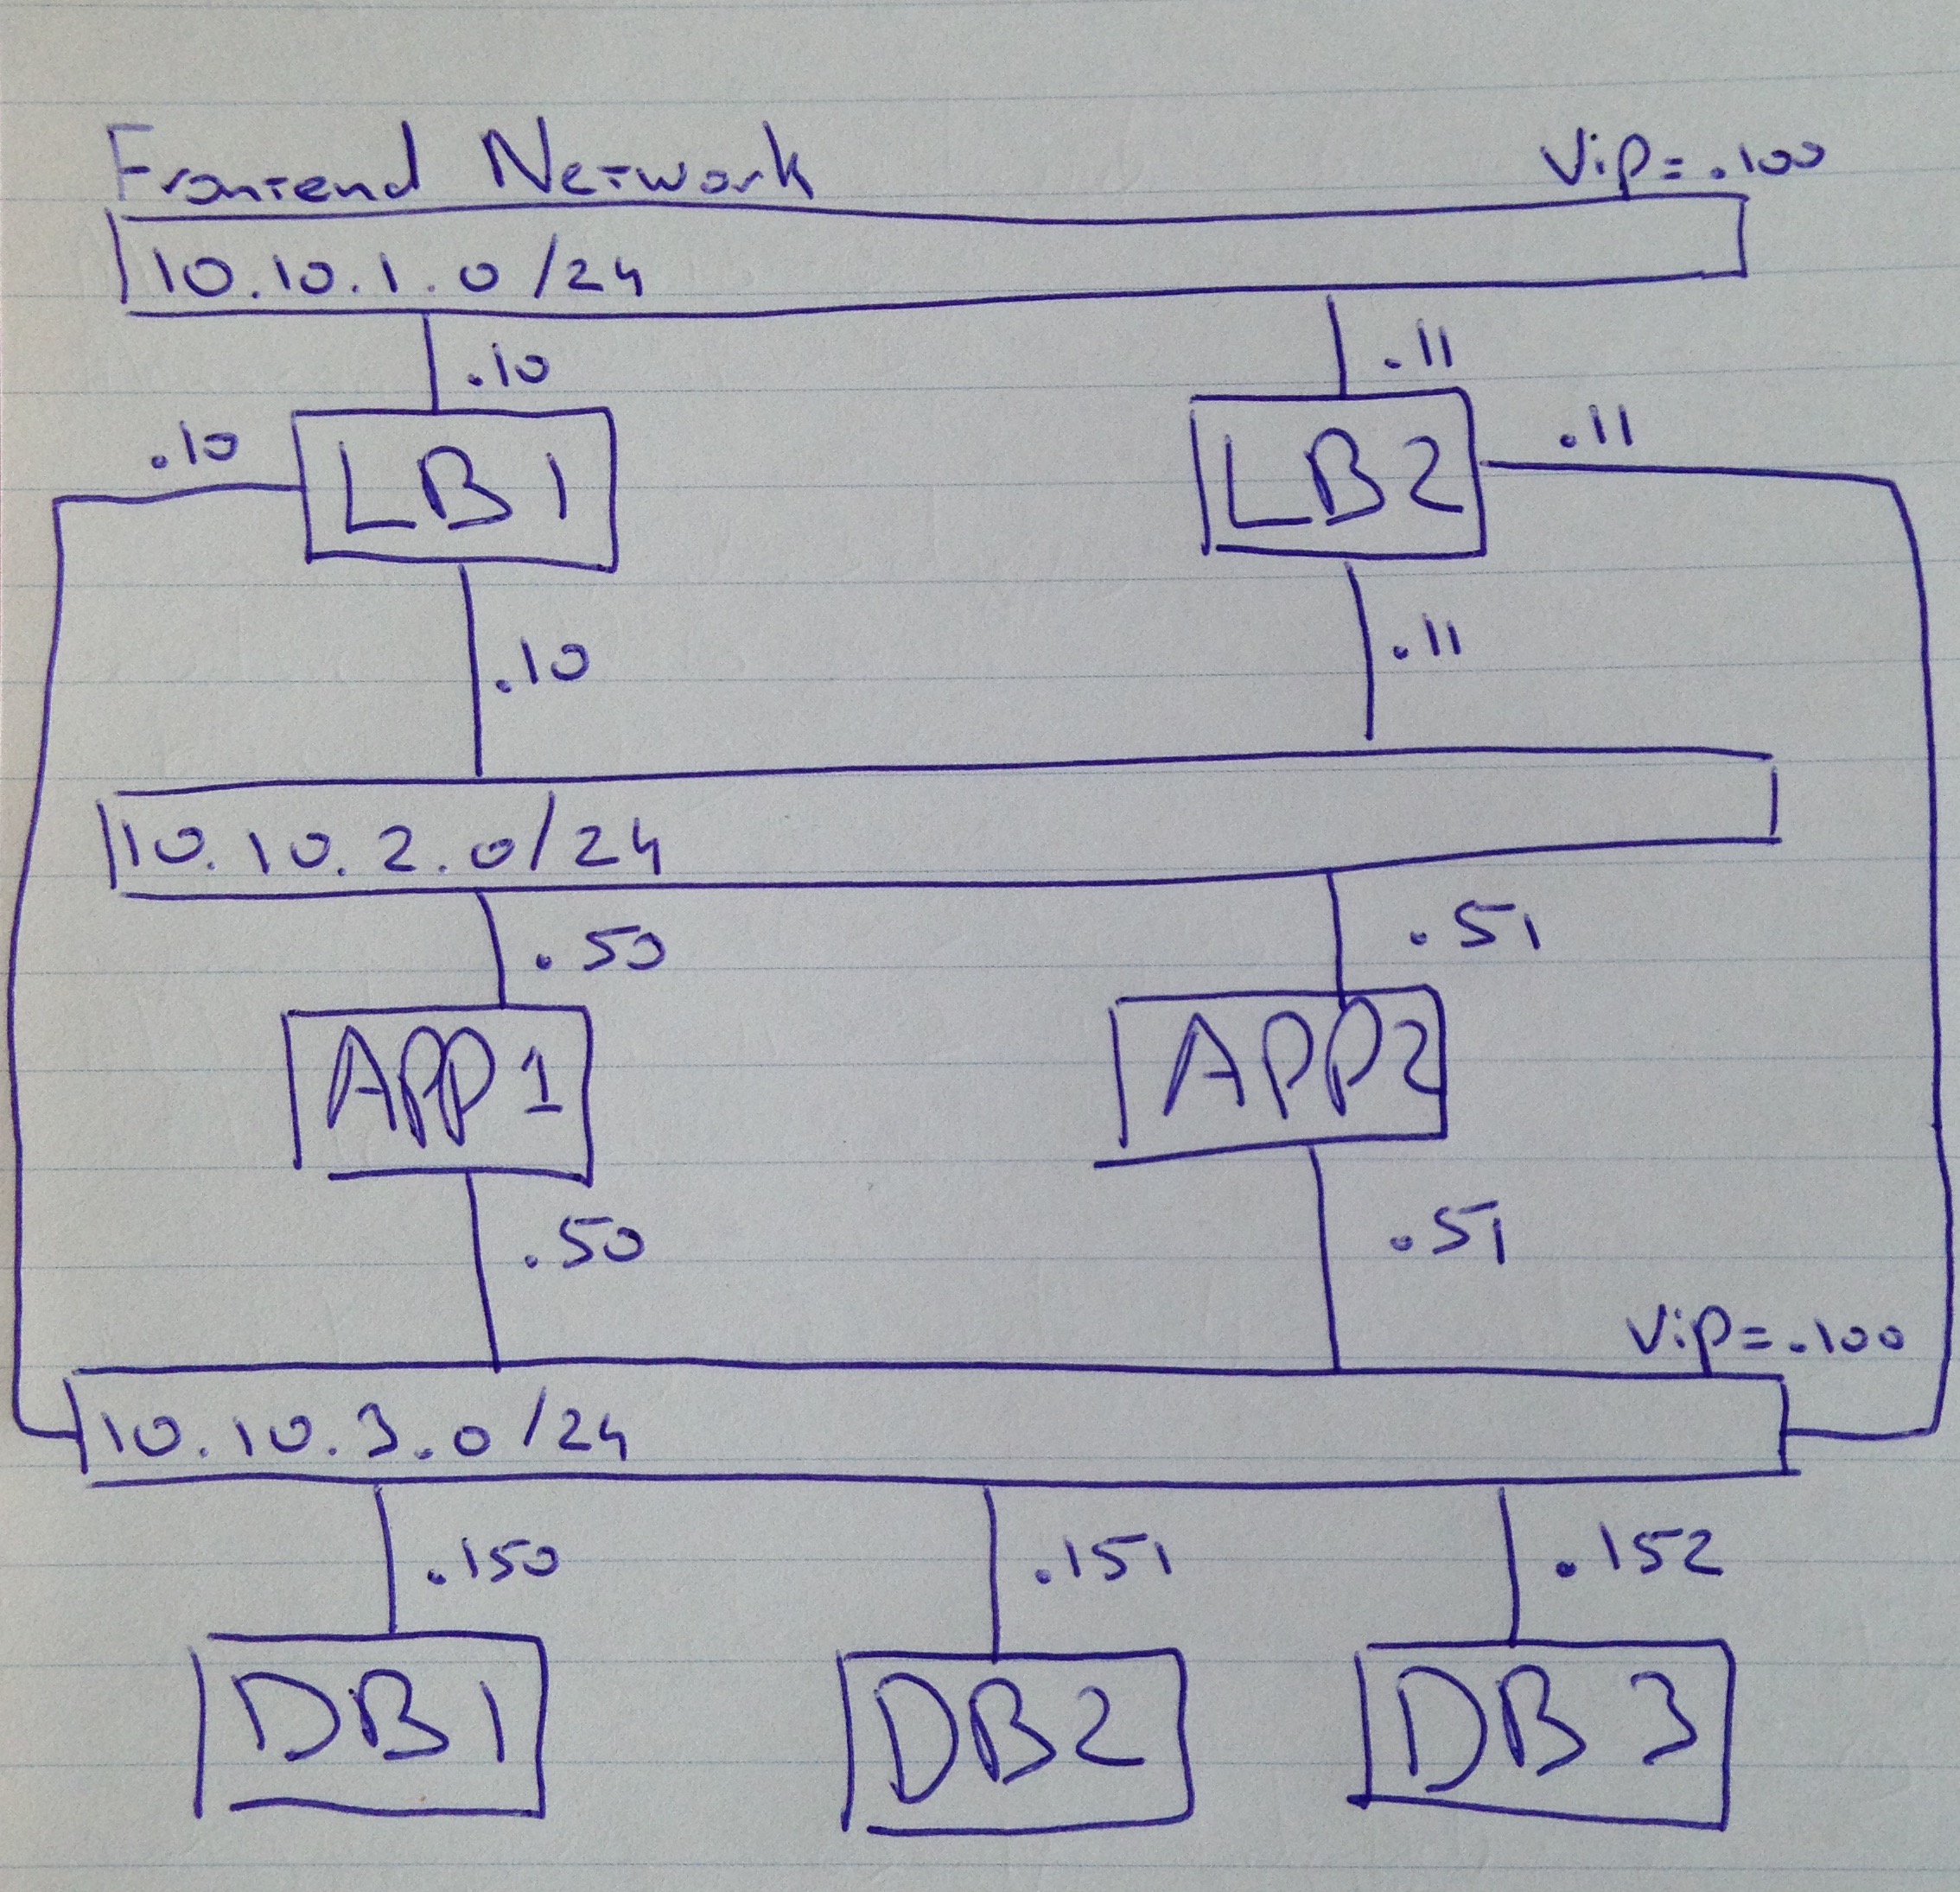 Frontend Network
Vip=.100
10.10.1.0/24
.10
.11
.10
LB1
LB2
.11
.10
.11
10.10.2.0/24
.50
.51
APP1
APP2
.50
.51
Vip=.100
10.10.3.0/24
.150
.151
.152
DB1
DB2
DB3